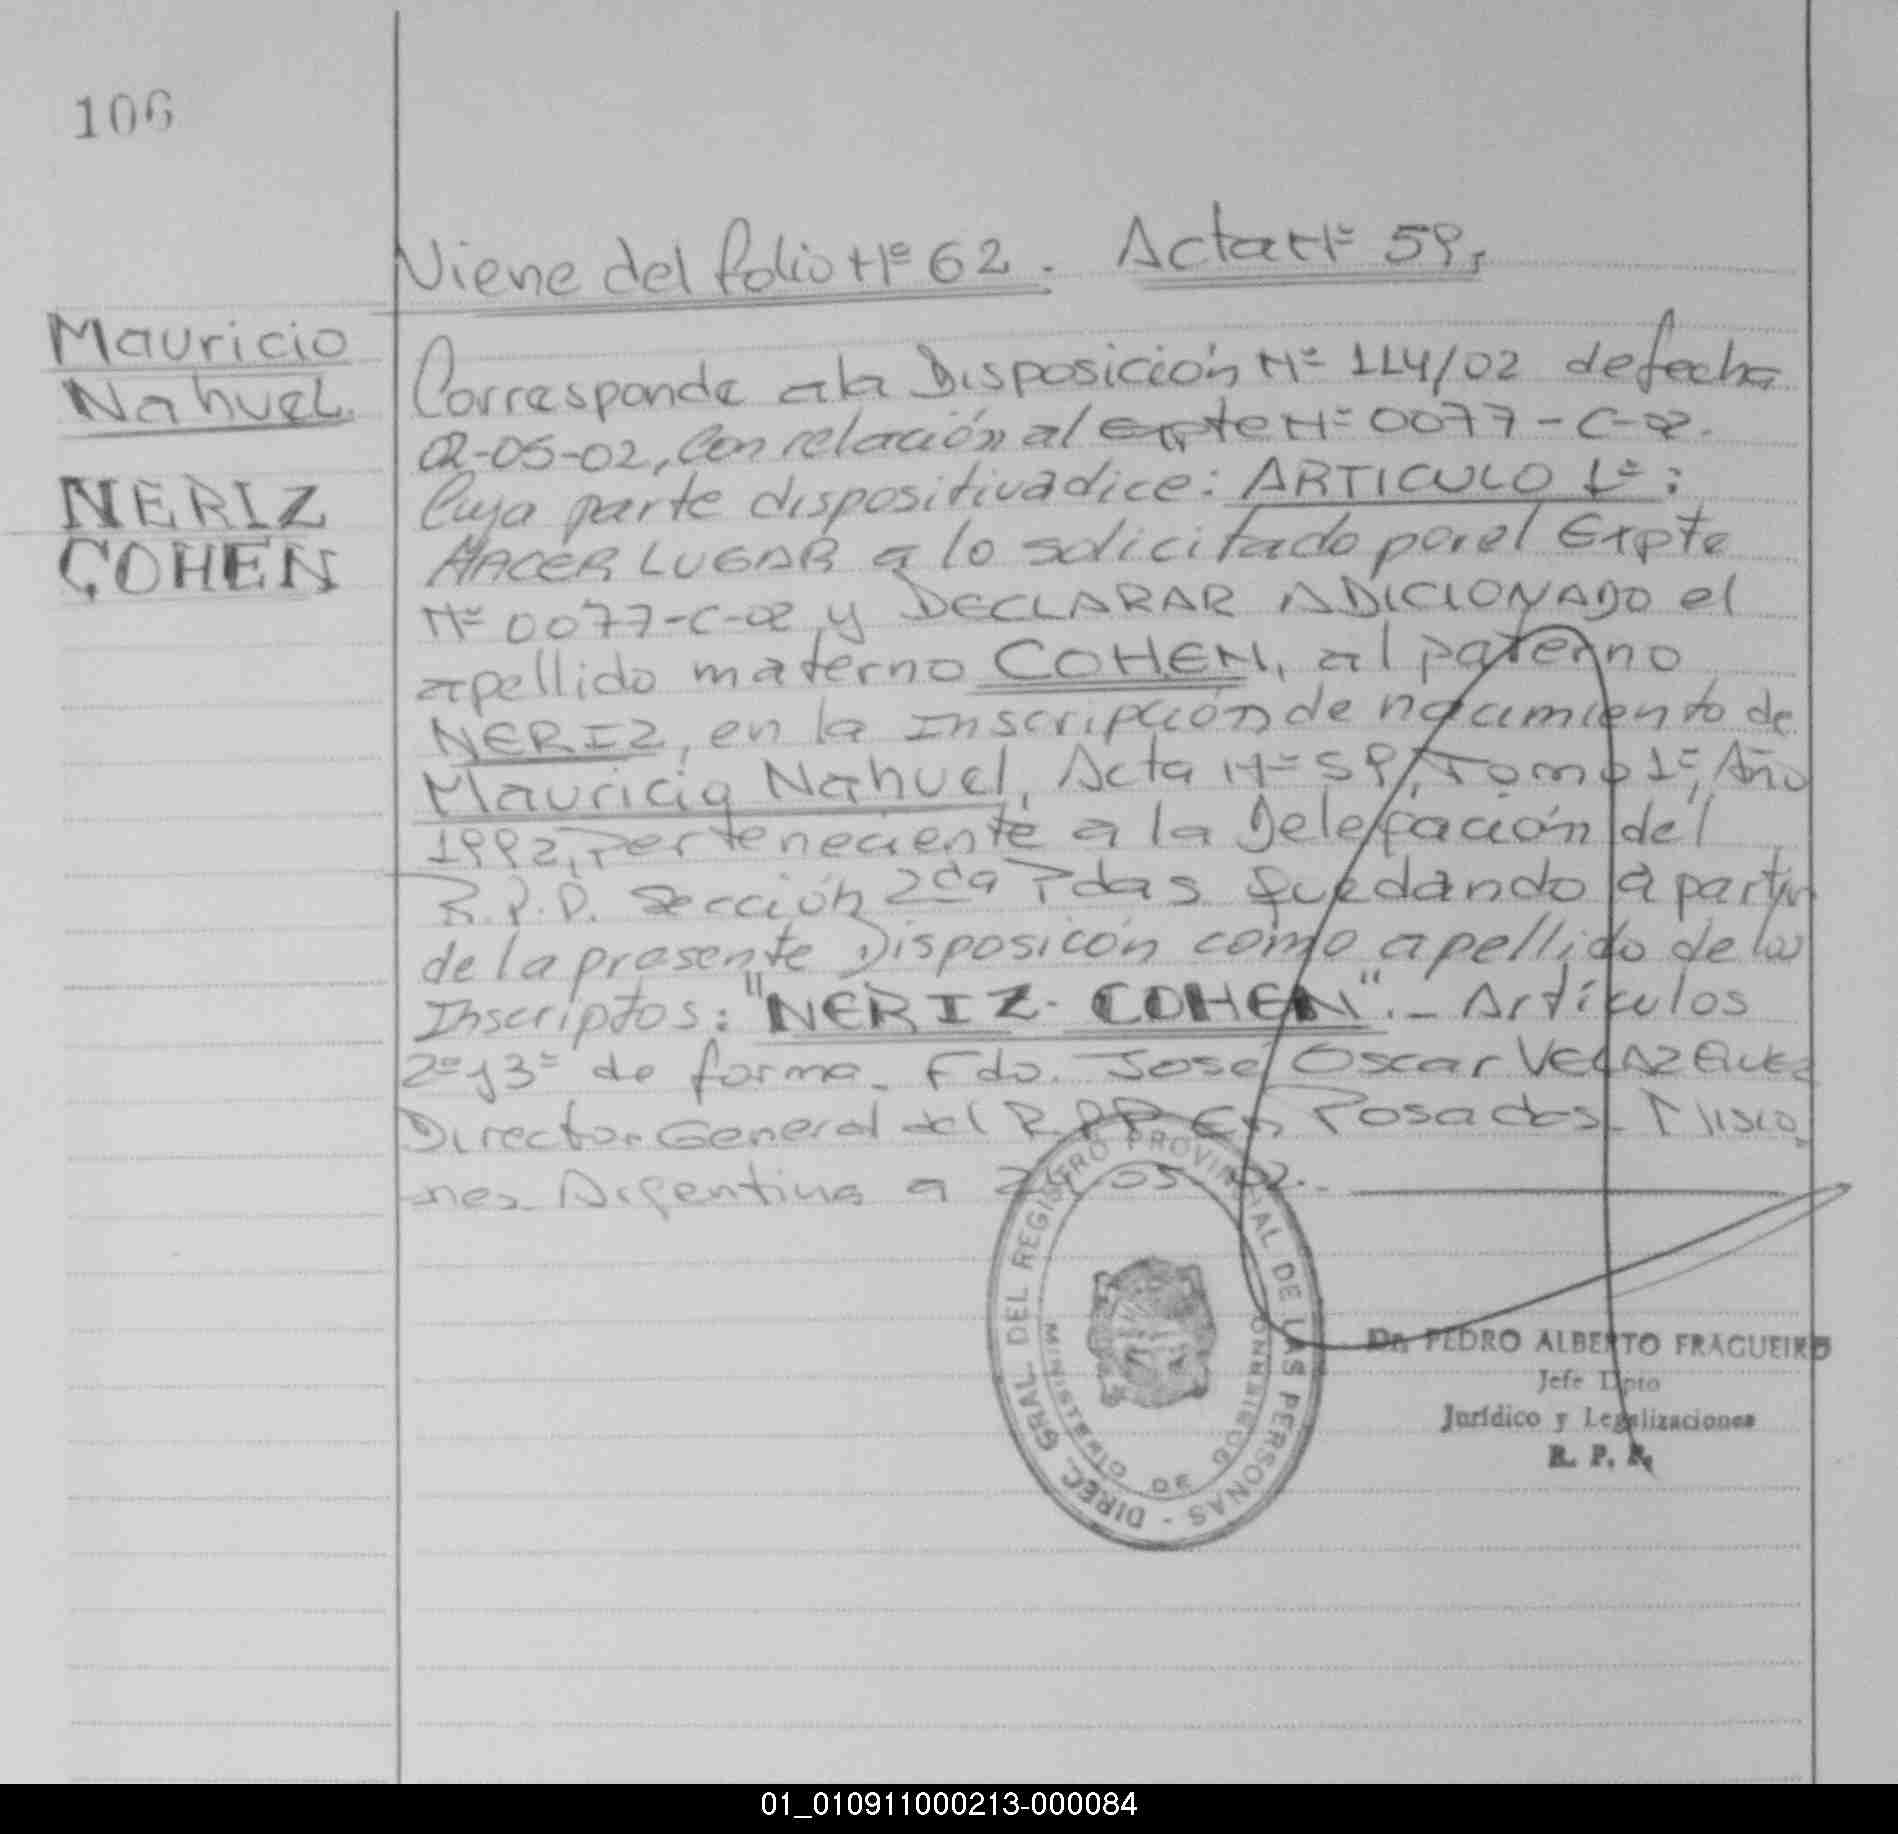 106
Viene del folio Nº 62. Acta Nº 59,
Mauricio
Nahuel.
NERIZ
COHEN
Corresponde a la Disposición Nº 114/02 de fecha
02-05-02, con relación al expte Nº 0077-C-02.
Cuya parte dispositiva dice: ARTICULO 1º:
HACER LUGAR a lo solicitado por el Expte
Nº 0077-C-02 y DECLARAR ADICIONADO el
apellido materno COHEN, al paterno
NERIZ, en la Inscripción de nacimiento de
Mauricio Nahuel, Acta Nº 59, Tomo 1º, Año
1992, Perteneciente a la Delegación del
R.P.P. Sección 2da Pdas quedando a partir
de la presente Disposicón como apellido de los
Inscriptos: "NERIZ-COHEN".- Artículos
2º y 3º de forma. Fdo. José Oscar VELAZQUEZ
Director General del R.P.P. En Posadas Misio
nes Argentina a 05 02.-
DIREC. GRAL DEL REGISTRO PROVINCIAL DE LAS PERSONAS -
MINISTERIO DE GOBIERNO
Dr. PEDRO ALBERTO FRAGUEIRO
Jefe Dpto
Jurídico y Legalizaciones
R. P. P.
01_010911000213-000084